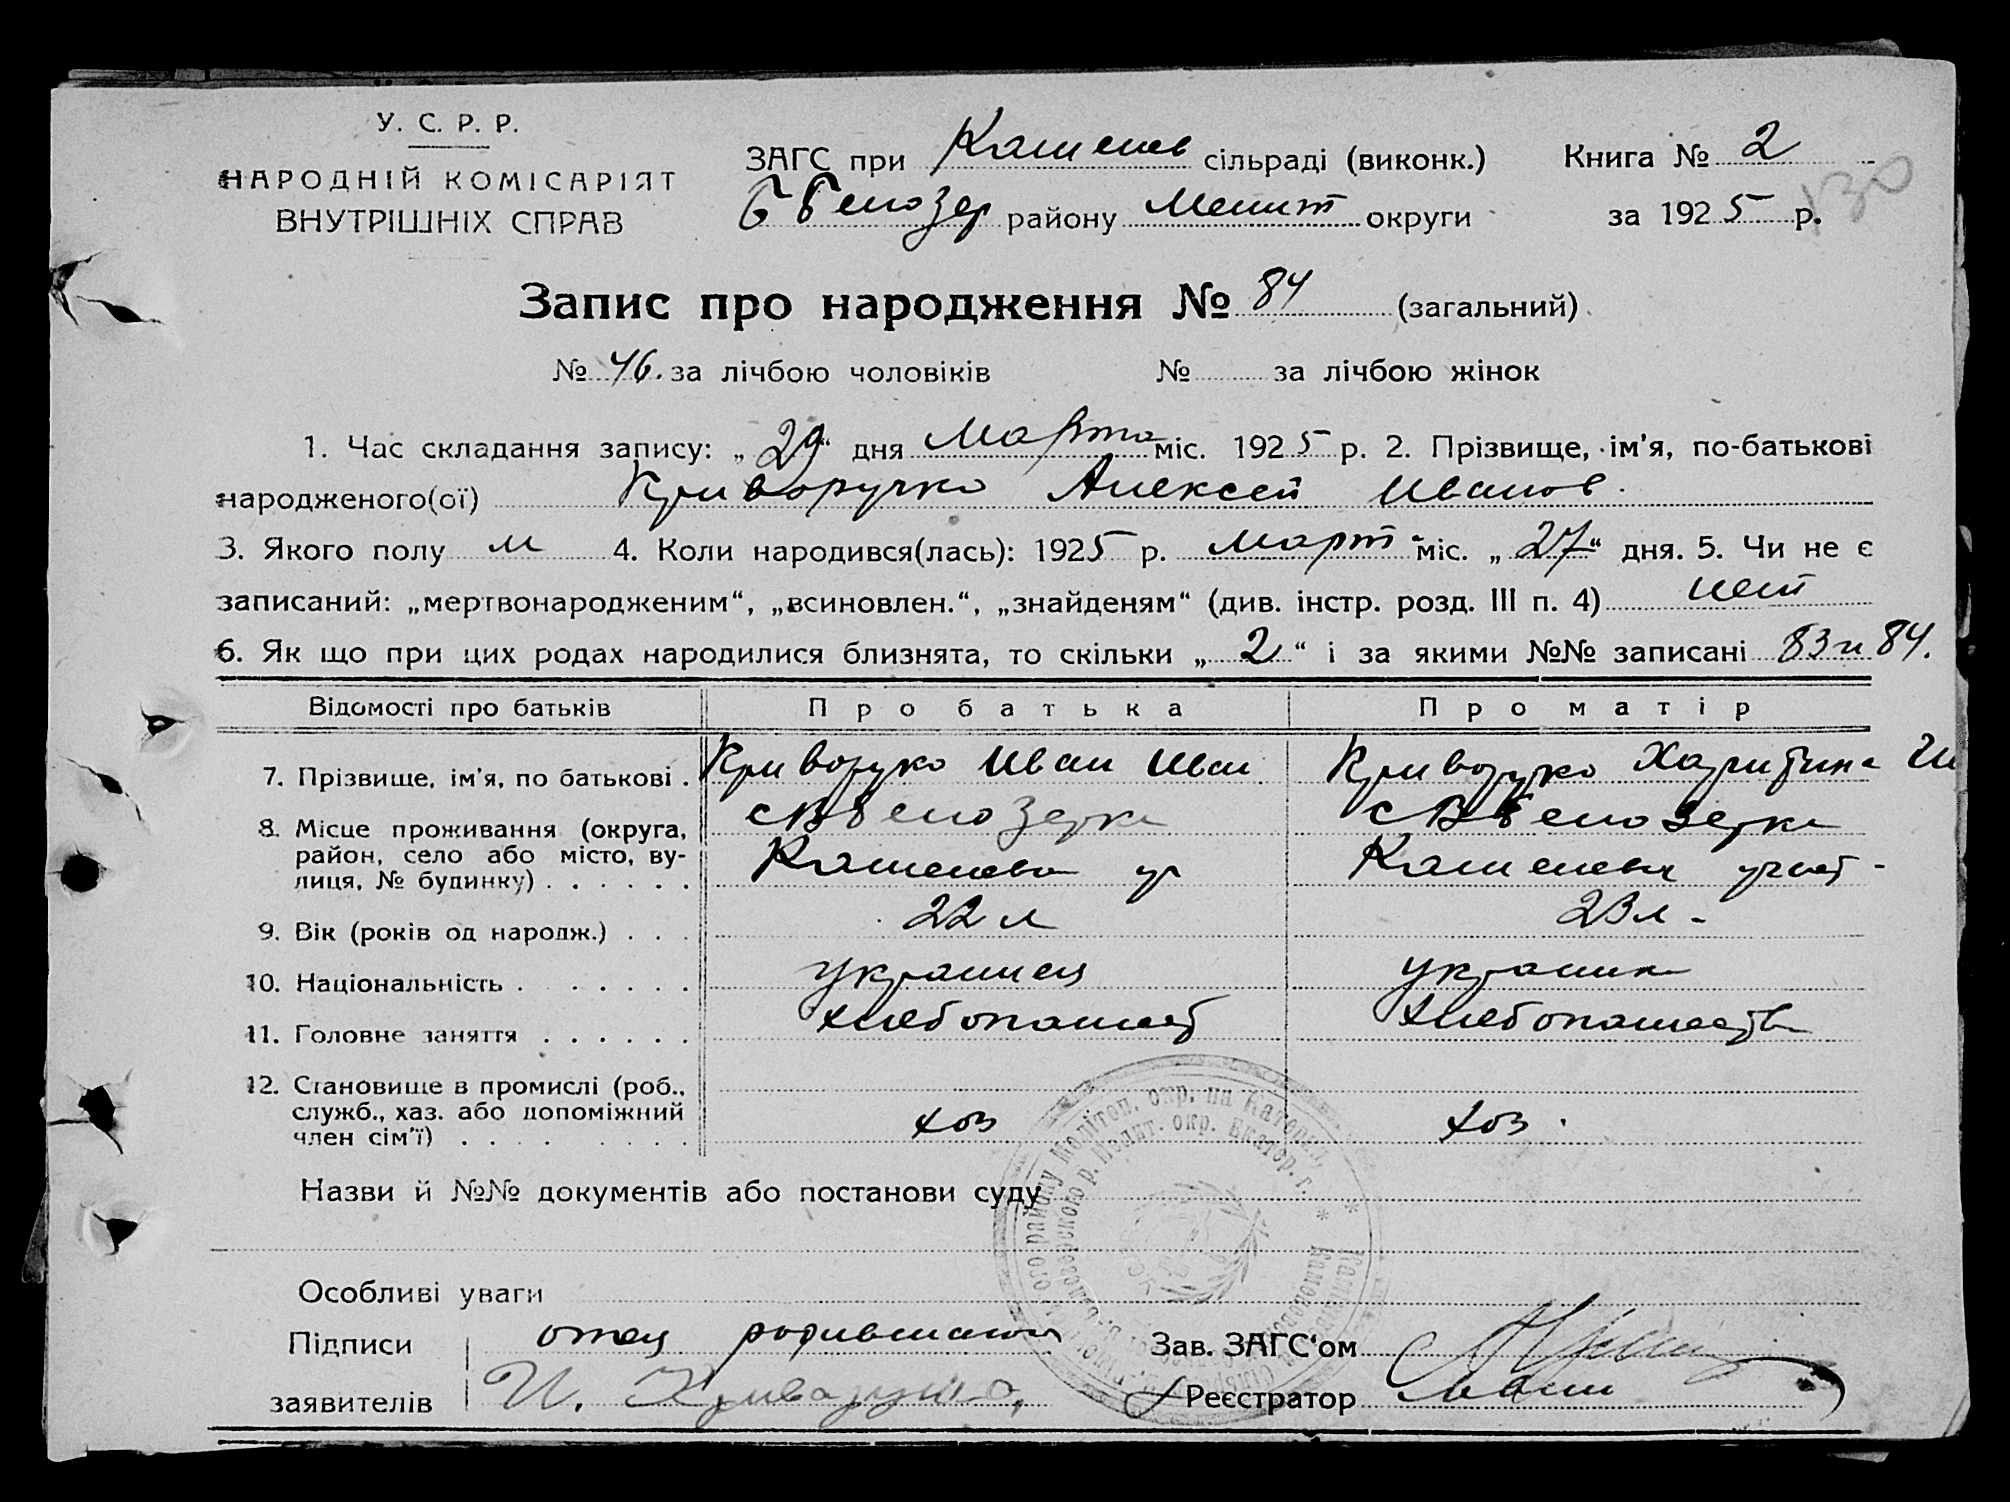 У. С. Р. Р.
НАРОДНІЙ КОМІСАРІЯТ
ВНУТРІШНІХ СПРАВ
ЗАГС при сільраді (виконк.)
Книга № 2
130
району Мелит округи
за 1925 р.
Запис про народження № 84 (загальний)
№ 46. за лічбою чоловіків № за лічбою жінок
1. Час складання запису: „29“ дня Марта міс. 1925 р. 2. Прізвище, ім'я, по-батькові
народженого(ої) Криворучко Алексей Иванов.
3. Якого полу м 4. Коли народився(лась): 1925 р. март міс. „27“ дня. 5. Чи не є
записаний: „мертвонародженим“, „всиновлен.“, „знайденям“ (див. інстр. розд. III п. 4) нет
6. Як що при цих родах народилися близнята, то скільки „2“ і за якими №№ записані 83 и 84.
Відомості про батьків Про батька Про матір
7. Прізвище, ім'я, по батькові . Криворучко Иван Иван Криворучко Харитина
8. Місце проживання (округа,
район, село або місто, ву-
лиця, № будинку) . . . . . .
9. Вік (років од народж.) . . . 22 л 23 л -
10. Національність . . . . . . украинец украинк
11. Головне заняття . . . . . . хлебопашест хлебопашество
12. Становище в промислі (роб.,
служб., хаз. або допоміжний
член сім'ї) . . . . . . . . хоз хоз .
Назви й №№ документів або постанови суду
Особливі уваги
Підписи отец родившагося Зав. ЗАГС'ом
заявителів И. Криворучко. Реєстратор